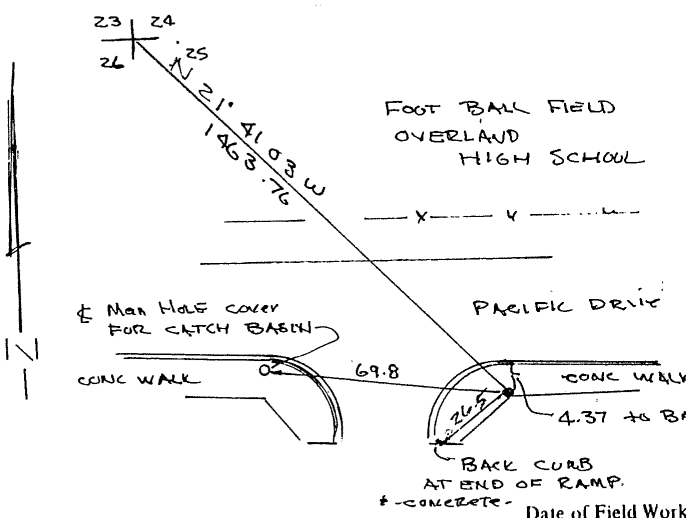 23 24
26 25
N 21° 41 03 W
1463.76
FOOT BALL FIELD
OVERLAND
HIGH SCHOOL
PACIFIC DRIVE
℄ Man HOLE cover
FOR CATCH BASIN
CONC WALK
69.8
26.5
CONC WALK
4.37 to BA
N
BACK CURB
AT END OF RAMP.
*-CONCRETE-
Date of Field Work